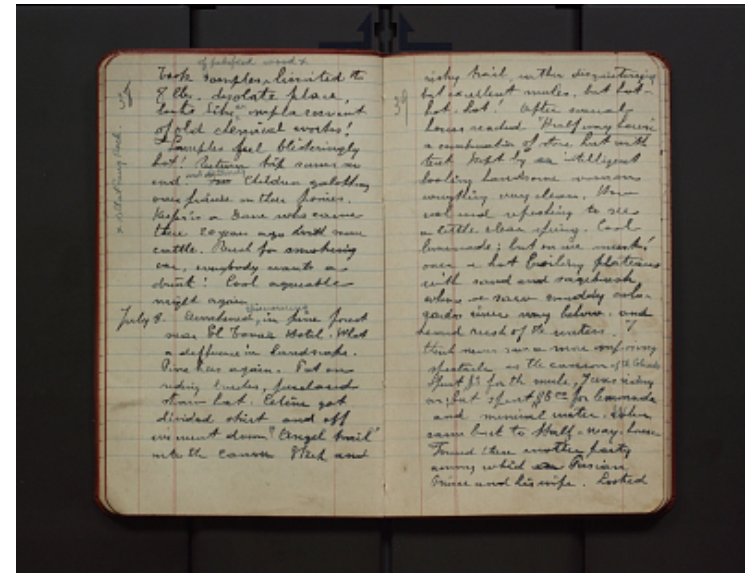 of petrified wood &
Took samples, limited to
38
8 lbs. desolate place,
looks like an replacement
of old chemical works!
Samples feel blisteringly
hot! Return trip seems no
end. Children galopping
over prairie on their ponies.
Keeper is a Dane who came
there 20 years ago with some
cattle. Rush for smoking
car, everybody wants a
drink! Cool agreeable
night again.
July 8. Awakened, this morning, in pine forest
near El Tovar Hotel. What
a difference in landscape.
Pine trees again. Put on
riding breeches, purchased
straw hat. Celine got
divided skirt and off
we went down "Angel trail"
into the canyon. Steep and
39
risky trail, rather disquieting
but excellent mules, but hot-
hot, hot! After several
hours reached "Half way house"
a combination of store, hut with
tent kept by an intelligent
looking handsome woman
everything very clean. How
cool and refreshing to see
a little clear spring. Cool
lemonade; but on we went!
over a hot boiling plateau
with sand and sagebrush
where we saw muddy colo-
rado river way below and
heard rush of the waters. I
think never saw a more imposing
spectacle as the canyon of the Colorado
Spent $ for the mule, I was riding
on, but spent $8 for lemonade
and mineral water. When
came back to Half-way-house
Found there another party
among which a Prussian
Prince and his wife. Looked